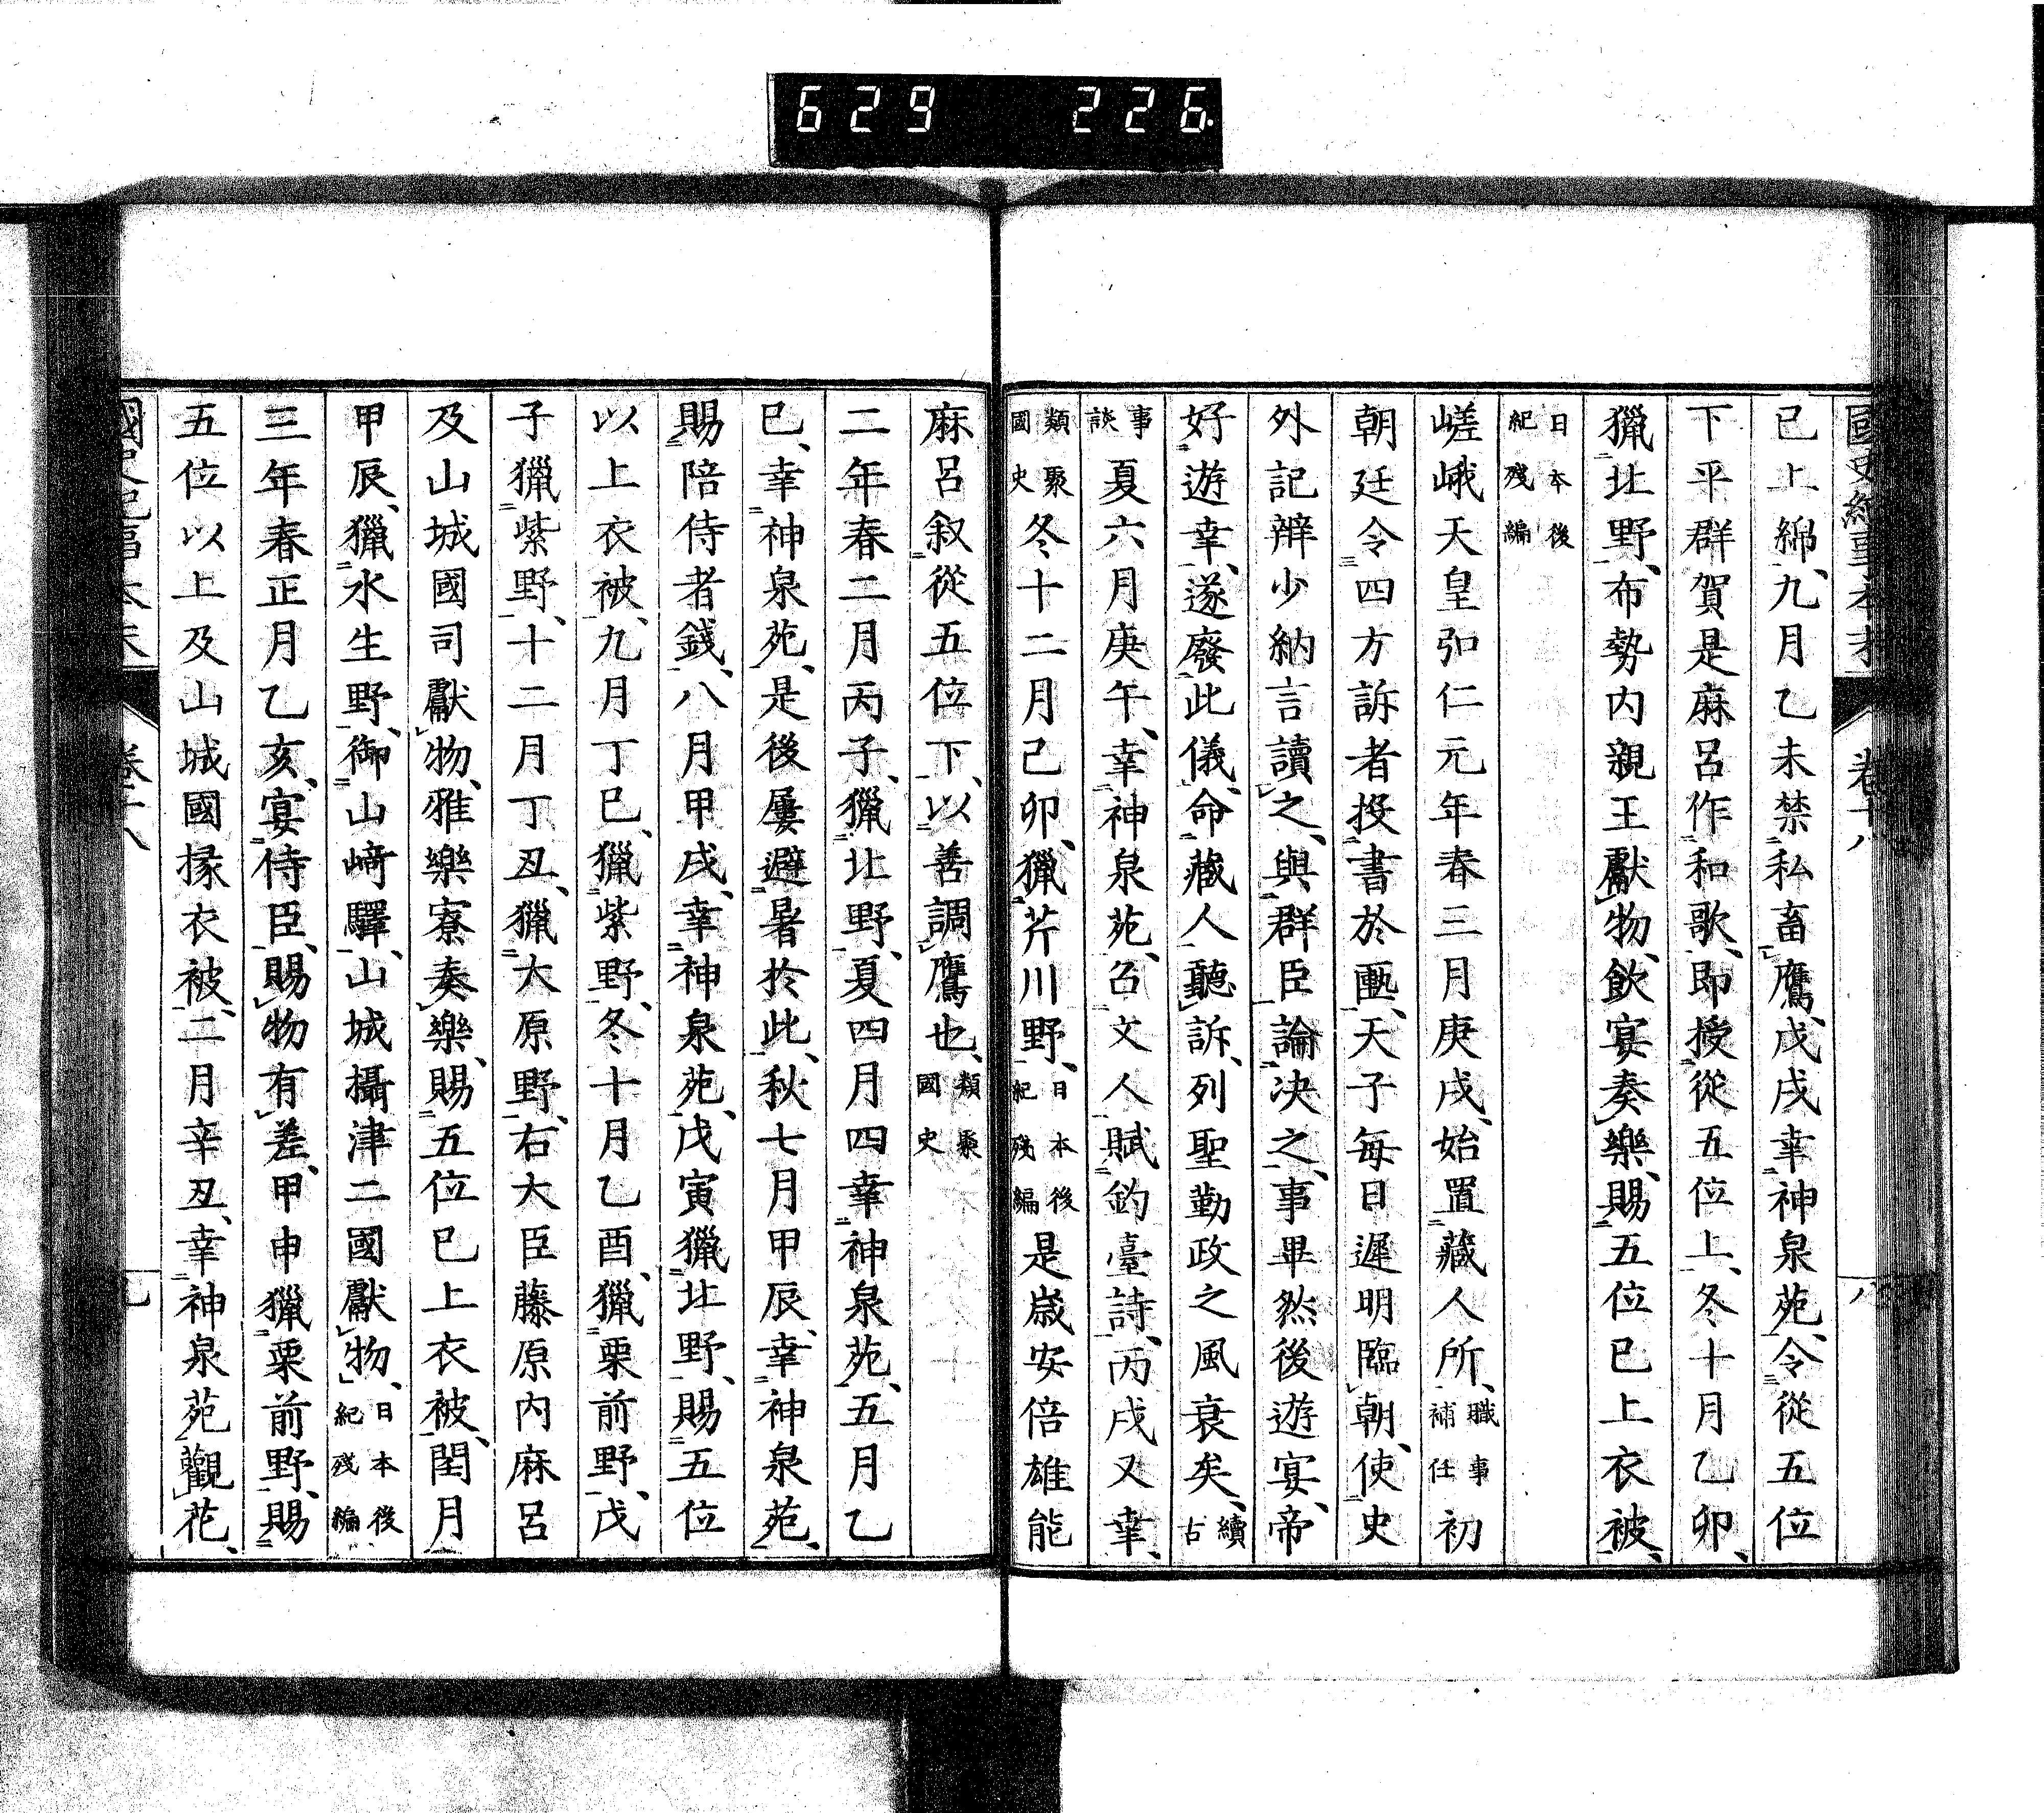 629 226.
國史紀事本末 卷十八 八
已上綿、九月乙未禁私畜鷹、戊戌幸神泉苑、令從五位
下平群賀是麻呂作和歌、即授從五位上、冬十月乙卯、
獵北野、布勢内親王獻物、飲宴奏樂、賜五位已上衣被、
日本後紀殘編
嵯峨天皇弘仁元年春三月庚戌、始置藏人所、職事補任初
朝廷令四方訴者投書於匭、天子每日遲明臨朝、使史
外記辨少納言讀之、與群臣論决之、事畢然後遊宴、帝
好遊幸、遂廢此儀、命藏人聽訴、列聖勤政之風衰矣、續古
事談夏六月庚午、幸神泉苑、召文人賦釣臺詩、丙戌又幸、
類聚國史冬十二月己卯、獵芹川野、日本後紀殘編是歲安倍雄能
麻呂叙從五位下、以善調鷹也、類聚國史
二年春二月丙子、獵北野、夏四月四幸神泉苑、五月乙
巳、幸神泉苑、是後屢避暑於此、秋七月甲辰、幸神泉苑、
賜陪侍者錢、八月甲戌、幸神泉苑、戊寅獵北野、賜五位
以上衣被、九月丁巳、獵紫野、冬十月乙酉、獵栗前野、戊
子獵紫野、十二月丁丑、獵大原野、右大臣藤原内麻呂
及山城國司獻物、雅樂寮奏樂、賜五位已上衣被、閏月
甲辰、獵水生野、御山﨑驛、山城攝津二國獻物、日本後紀殘編
三年春正月乙亥、宴侍臣、賜物有差、甲申獵栗前野、賜
五位以上及山城國掾衣被、二月辛丑、幸神泉苑觀花、
國史紀事本末 卷十八 九